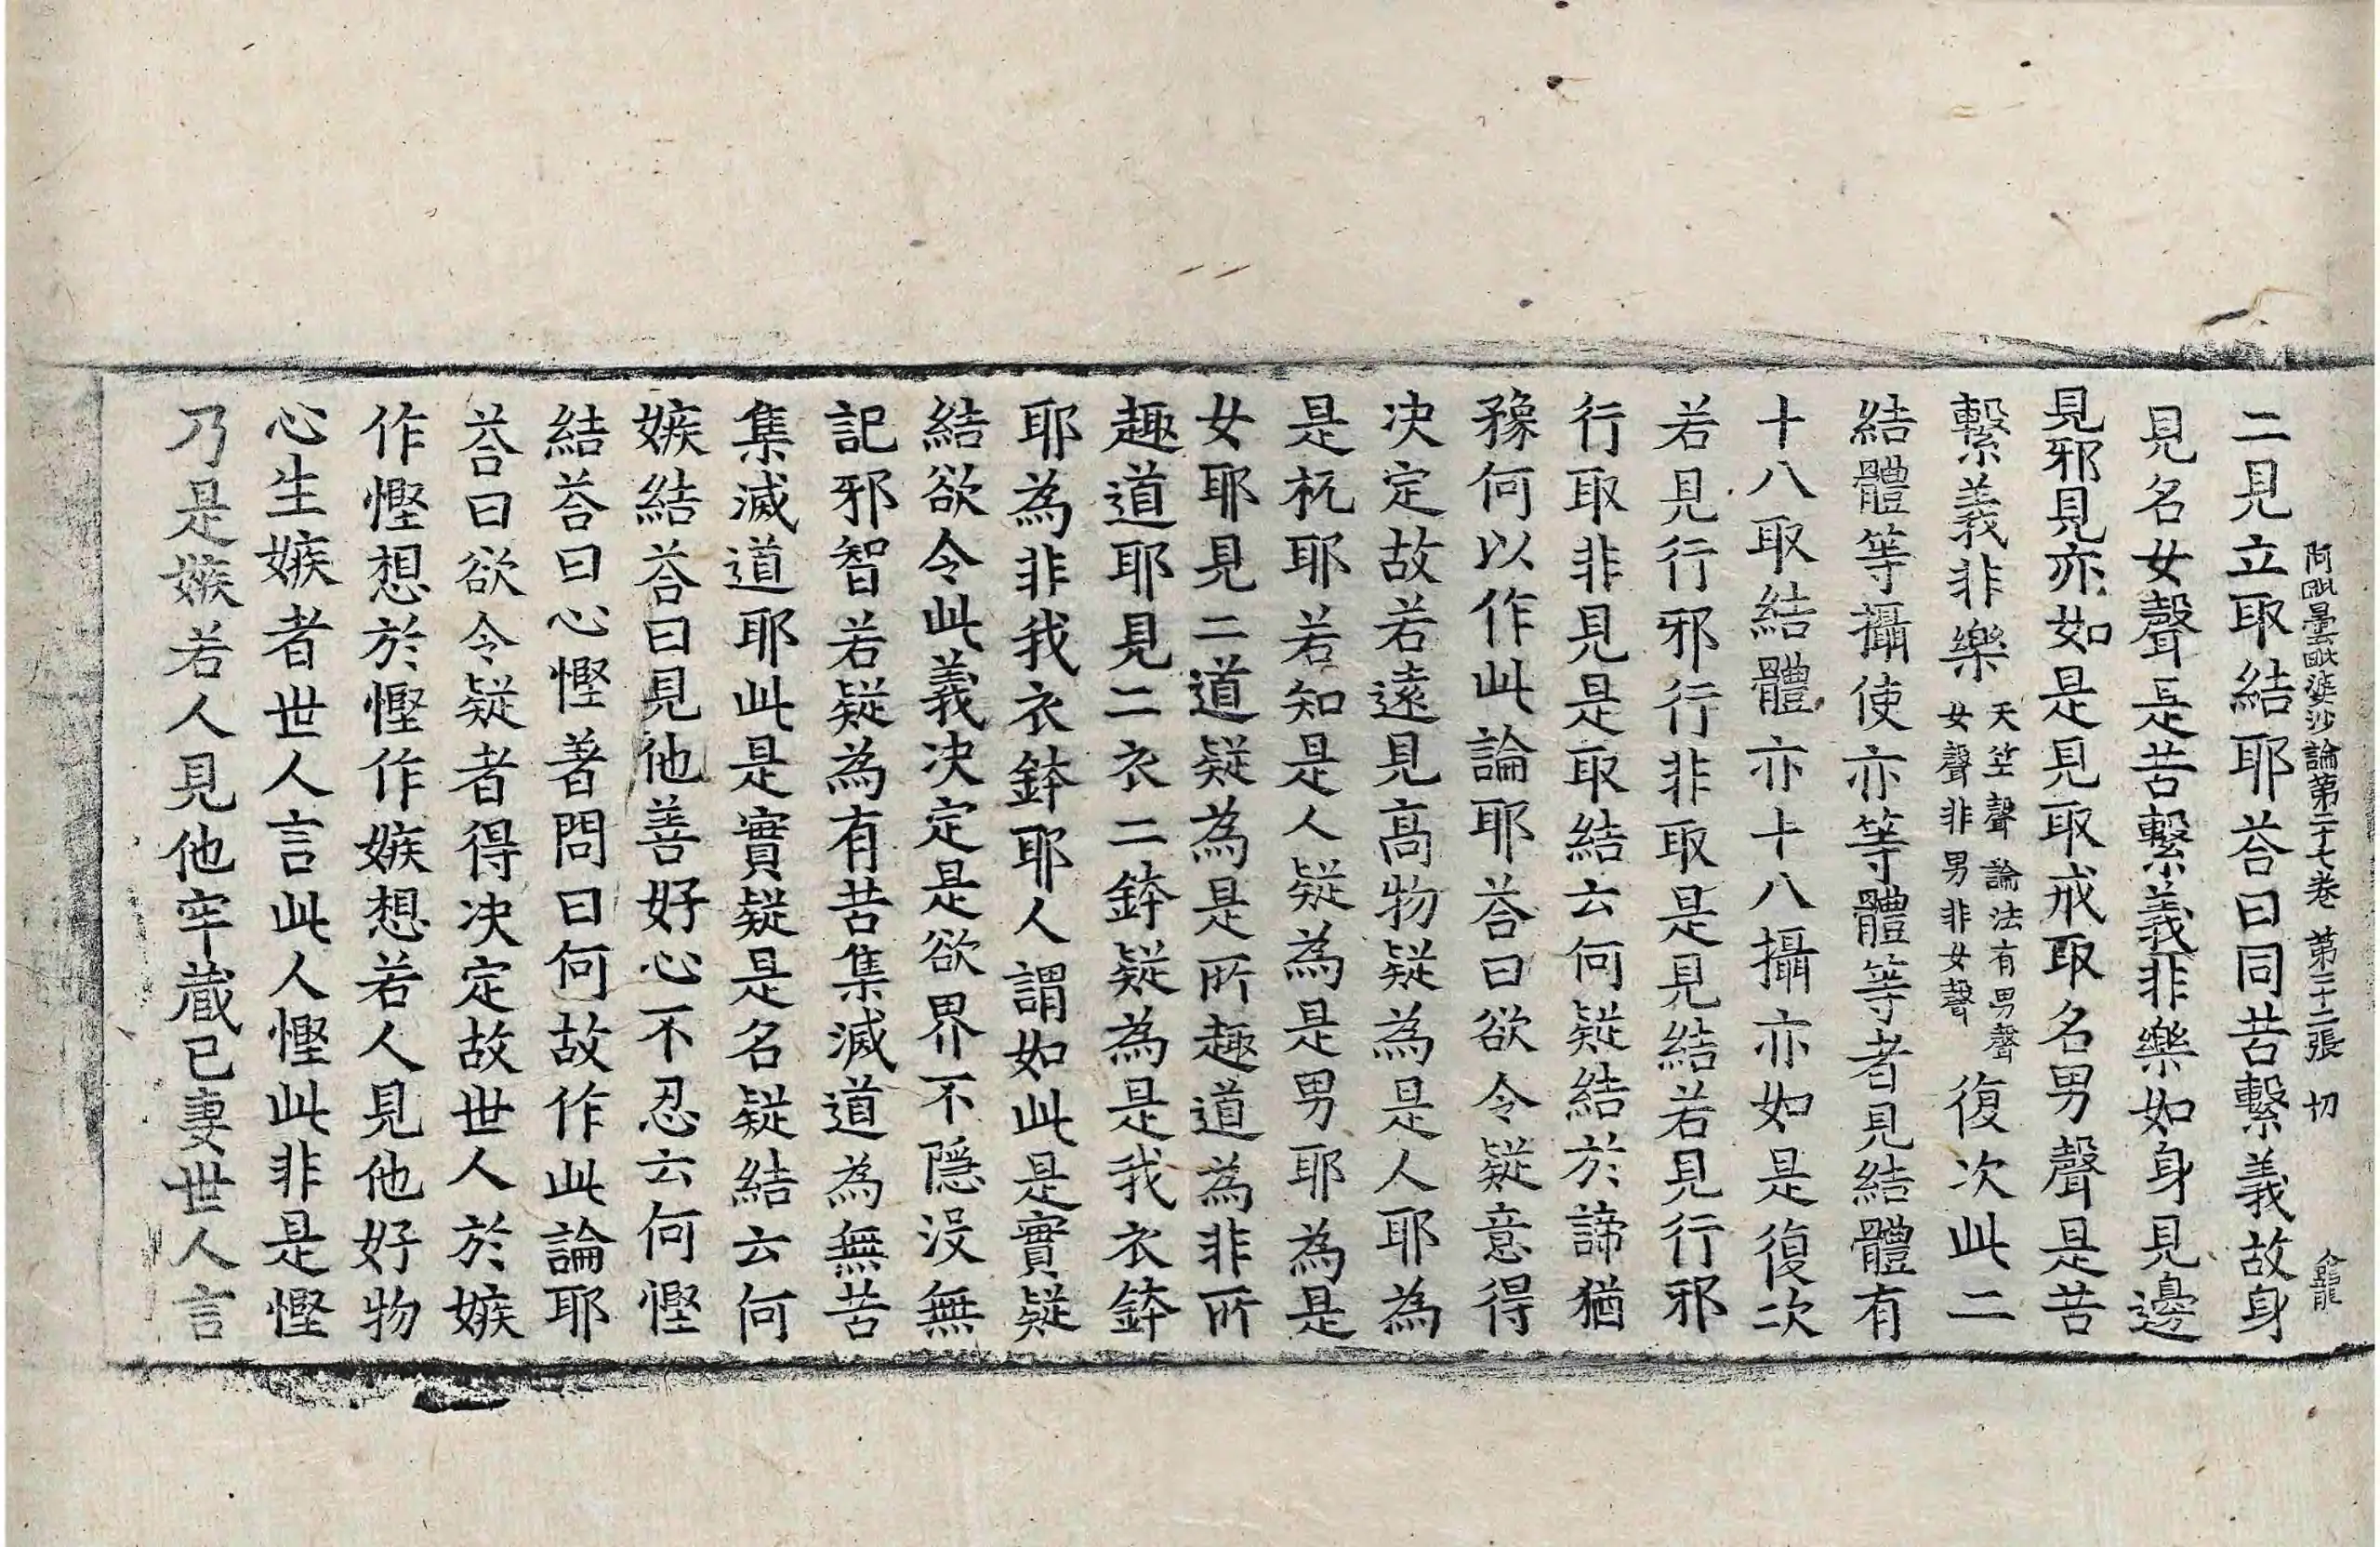 阿毗曇毗婆沙論第二十七卷 第三十二張 切
二見立取結耶荅曰同苦繫義故身
見名女聲是苦繫義非樂如身見邊
見邪見亦如是見取戒取名男聲是苦
繫義非樂天竺聲論法有男聲女聲非男非女聲復次此二
結體等攝使亦等體等者見結體有
十八取結體亦十八攝亦如是復次
若見行邪行非取是見結若見行邪
行取非見是取結云何疑結於諦猶
豫何以作此論耶荅曰欲令疑意得
决定故若遠見高物疑為是人耶為
是杌耶若知是人疑為是男耶為是
女耶見二道疑為是所趣道為非所
趣道耶見二衣二鉢疑為是我衣鉢
耶為非我衣鉢耶人謂如此是實疑
結欲令此義决定是欲界不隱没無
記邪智若疑為有苦集滅道為無苦
集滅道耶此是實疑是名疑結云何
嫉結荅曰見他善好心不忍云何慳
結荅曰心慳著問曰何故作此論耶
荅曰欲令疑者得决定故世人於嫉
作慳想於慳作嫉想若人見他好物
心生嫉者世人言此人慳此非是慳
乃是嫉若人見他牢蔵已妻世人言